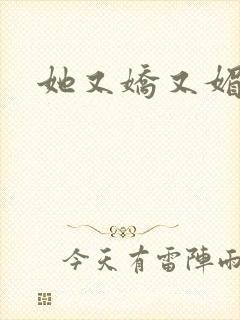 她又嬌又媚
今天有雷陣雨